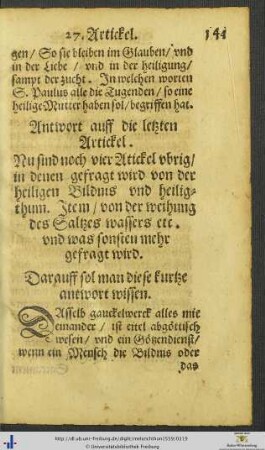 27. Artickel. 141
gen/ So sie bleiben im Glauben/ vnd
in der Liebe / vnd in der heiligung/
sampt der zucht. In welchen worten
S. Paulus alle die Tugenden / so eine
heilige Mutter haben sol / begriffen hat.
Antwort auff die letzten
Artickel.
Nu sind noch vier Atickel vbrig/
in denen gefragt wird von der
heiligen Bildnis vnd heilig-
thum. Item / von der weihung
des Saltzes wassers etc.
vnd was sonsten mehr
gefragt wird.
Darauff sol man diese kurtze
antwort wissen.
DAsselb gauckelwerck alles mit
einander / ist eitel abgöttisch
wesen/ vnd ein Götzendienst/
wenn ein Mensch die Bildnis oder
das
© Universitätsbibliothek Freiburg
Baden-Württemberg